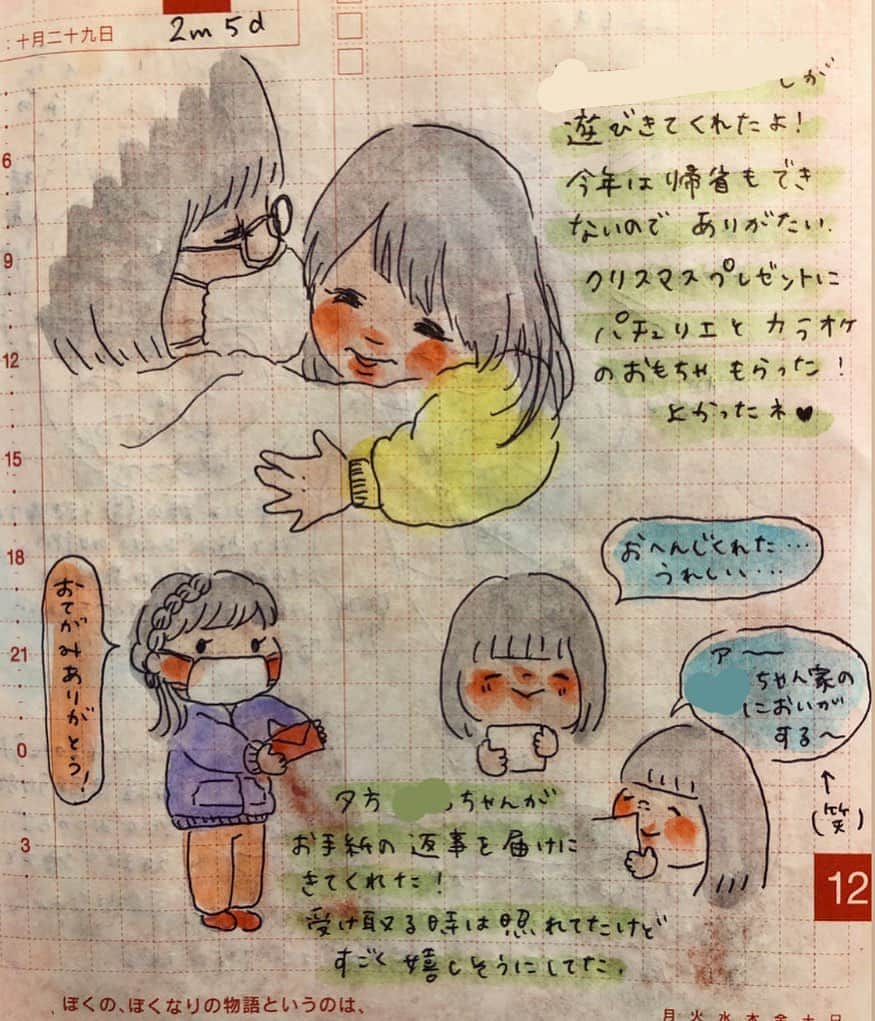 ：十月二十九日
2m 5d
しが
遊びきてくれたよ！
今年は帰省もでき
ないので ありがたい.
クリスマスプレゼントに
パチュリエとカラオケ
のおもちゃ もらった！
よかったネ♥
6
9
12
15
18
21
0
3
おへんじくれた…
うれしいし…
おてがみありがとう！
ア〜
ちゃん家の
においが
する〜
↑
(笑)
夕方 ちゃんが
お手紙の返事を届けに
きてくれた！
受け取る時は照れてたけど
すごく嬉しそうにしてた.
12
ぼくの、ぼくなりの物語というのは、
月 火 水 木 金 土 日